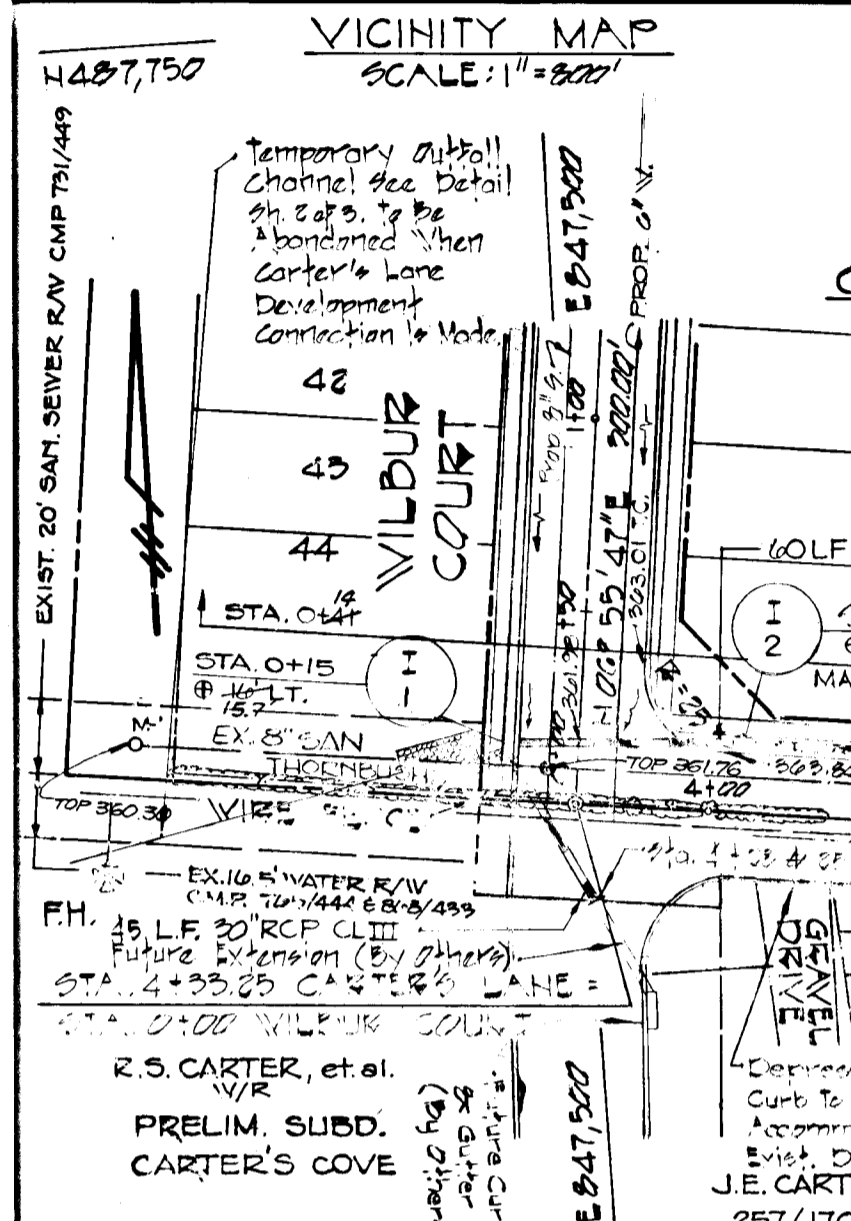 VICINITY MAP
SCALE: 1" = 800'
N 487,750
EXIST. 20' SAN. SEWER R/W CMP 731/449
Temporary Outfall
Channel See Detail
Sh. 2 of 3. To Be
Abandoned When
Carter's Lane
Development
Connection Is Made.
E 847,500
PROP. 6" W.
42
43
44
WILBUR
COURT
Prop 8" S.
1+00
300.00'
363.01 T.C.
+50
STA. 0+41
14
STA. 0+15
16' LT.
15.7
I-1
I
2
60 LF
MA
25'
EX. 8" SAN
THORNBUSH
TOP 360.30
TOP 361.76
4+00
EX. 16.5' WATER R/W
F.H.
45 L.F. 30" RCP CL III
Future Extension (By Others)
STA. 4+33.25 CARTER'S LANE =
STA. 0+00 WILBUR COURT
GRAVEL
DRIVE
R.S. CARTER, et. al.
W/R
PRELIM. SUBD.
CARTER'S COVE
Future Cur
& Gutter
(By Other
E 847,500
Depres
Curb To
Accomm
Exist. D
J.E. CART
257/170